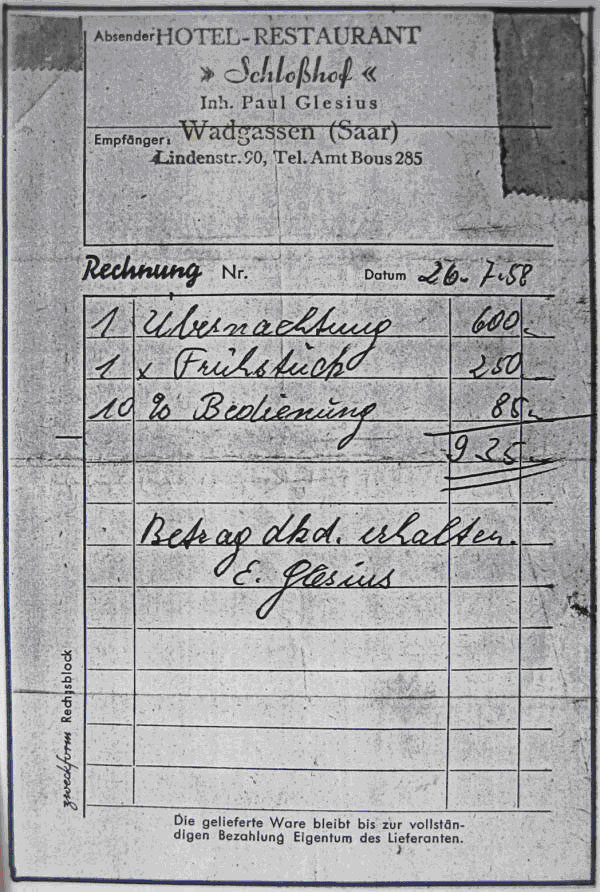 Absender HOTEL-RESTAURANT
» Schloßhof «
Inh. Paul Glesius
Empfänger: Wadgassen (Saar)
Lindenstr. 90, Tel. Amt Bous 285
Rechnung Nr. Datum 26.7.58
1 Übernachtung 600.-
1 x Frühstück 250.-
10 % Bedienung 85.-
935.-
Betrag dkd. erhalten.
E. Glesius
zweckform Rechnsblock
Die gelieferte Ware bleibt bis zur vollstän-
digen Bezahlung Eigentum des Lieferanten.